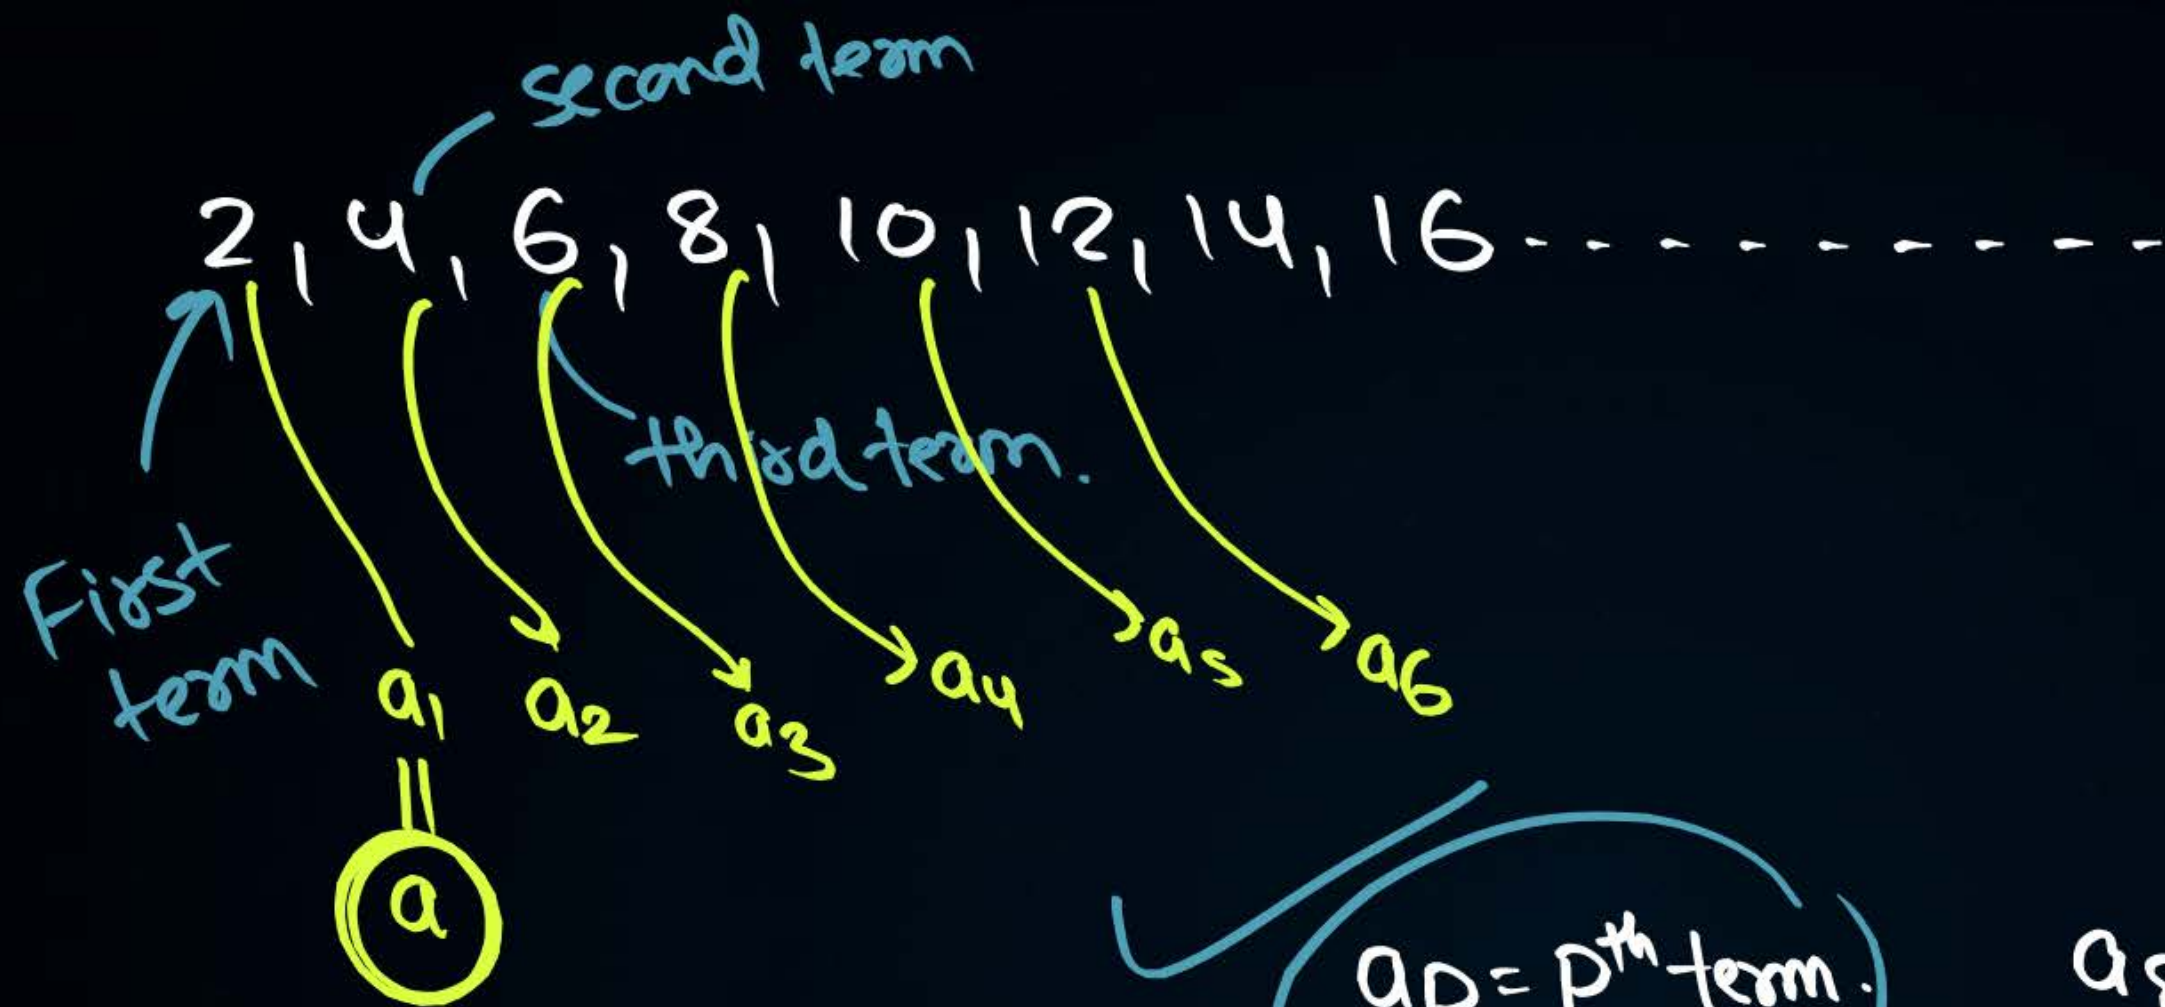 second term
2, 4, 6, 8, 10, 12, 14, 16 - - - - - - - - -
third term.
First
term
a1 a2 a3 a4 a5 a6
||
a
ap = pth term.